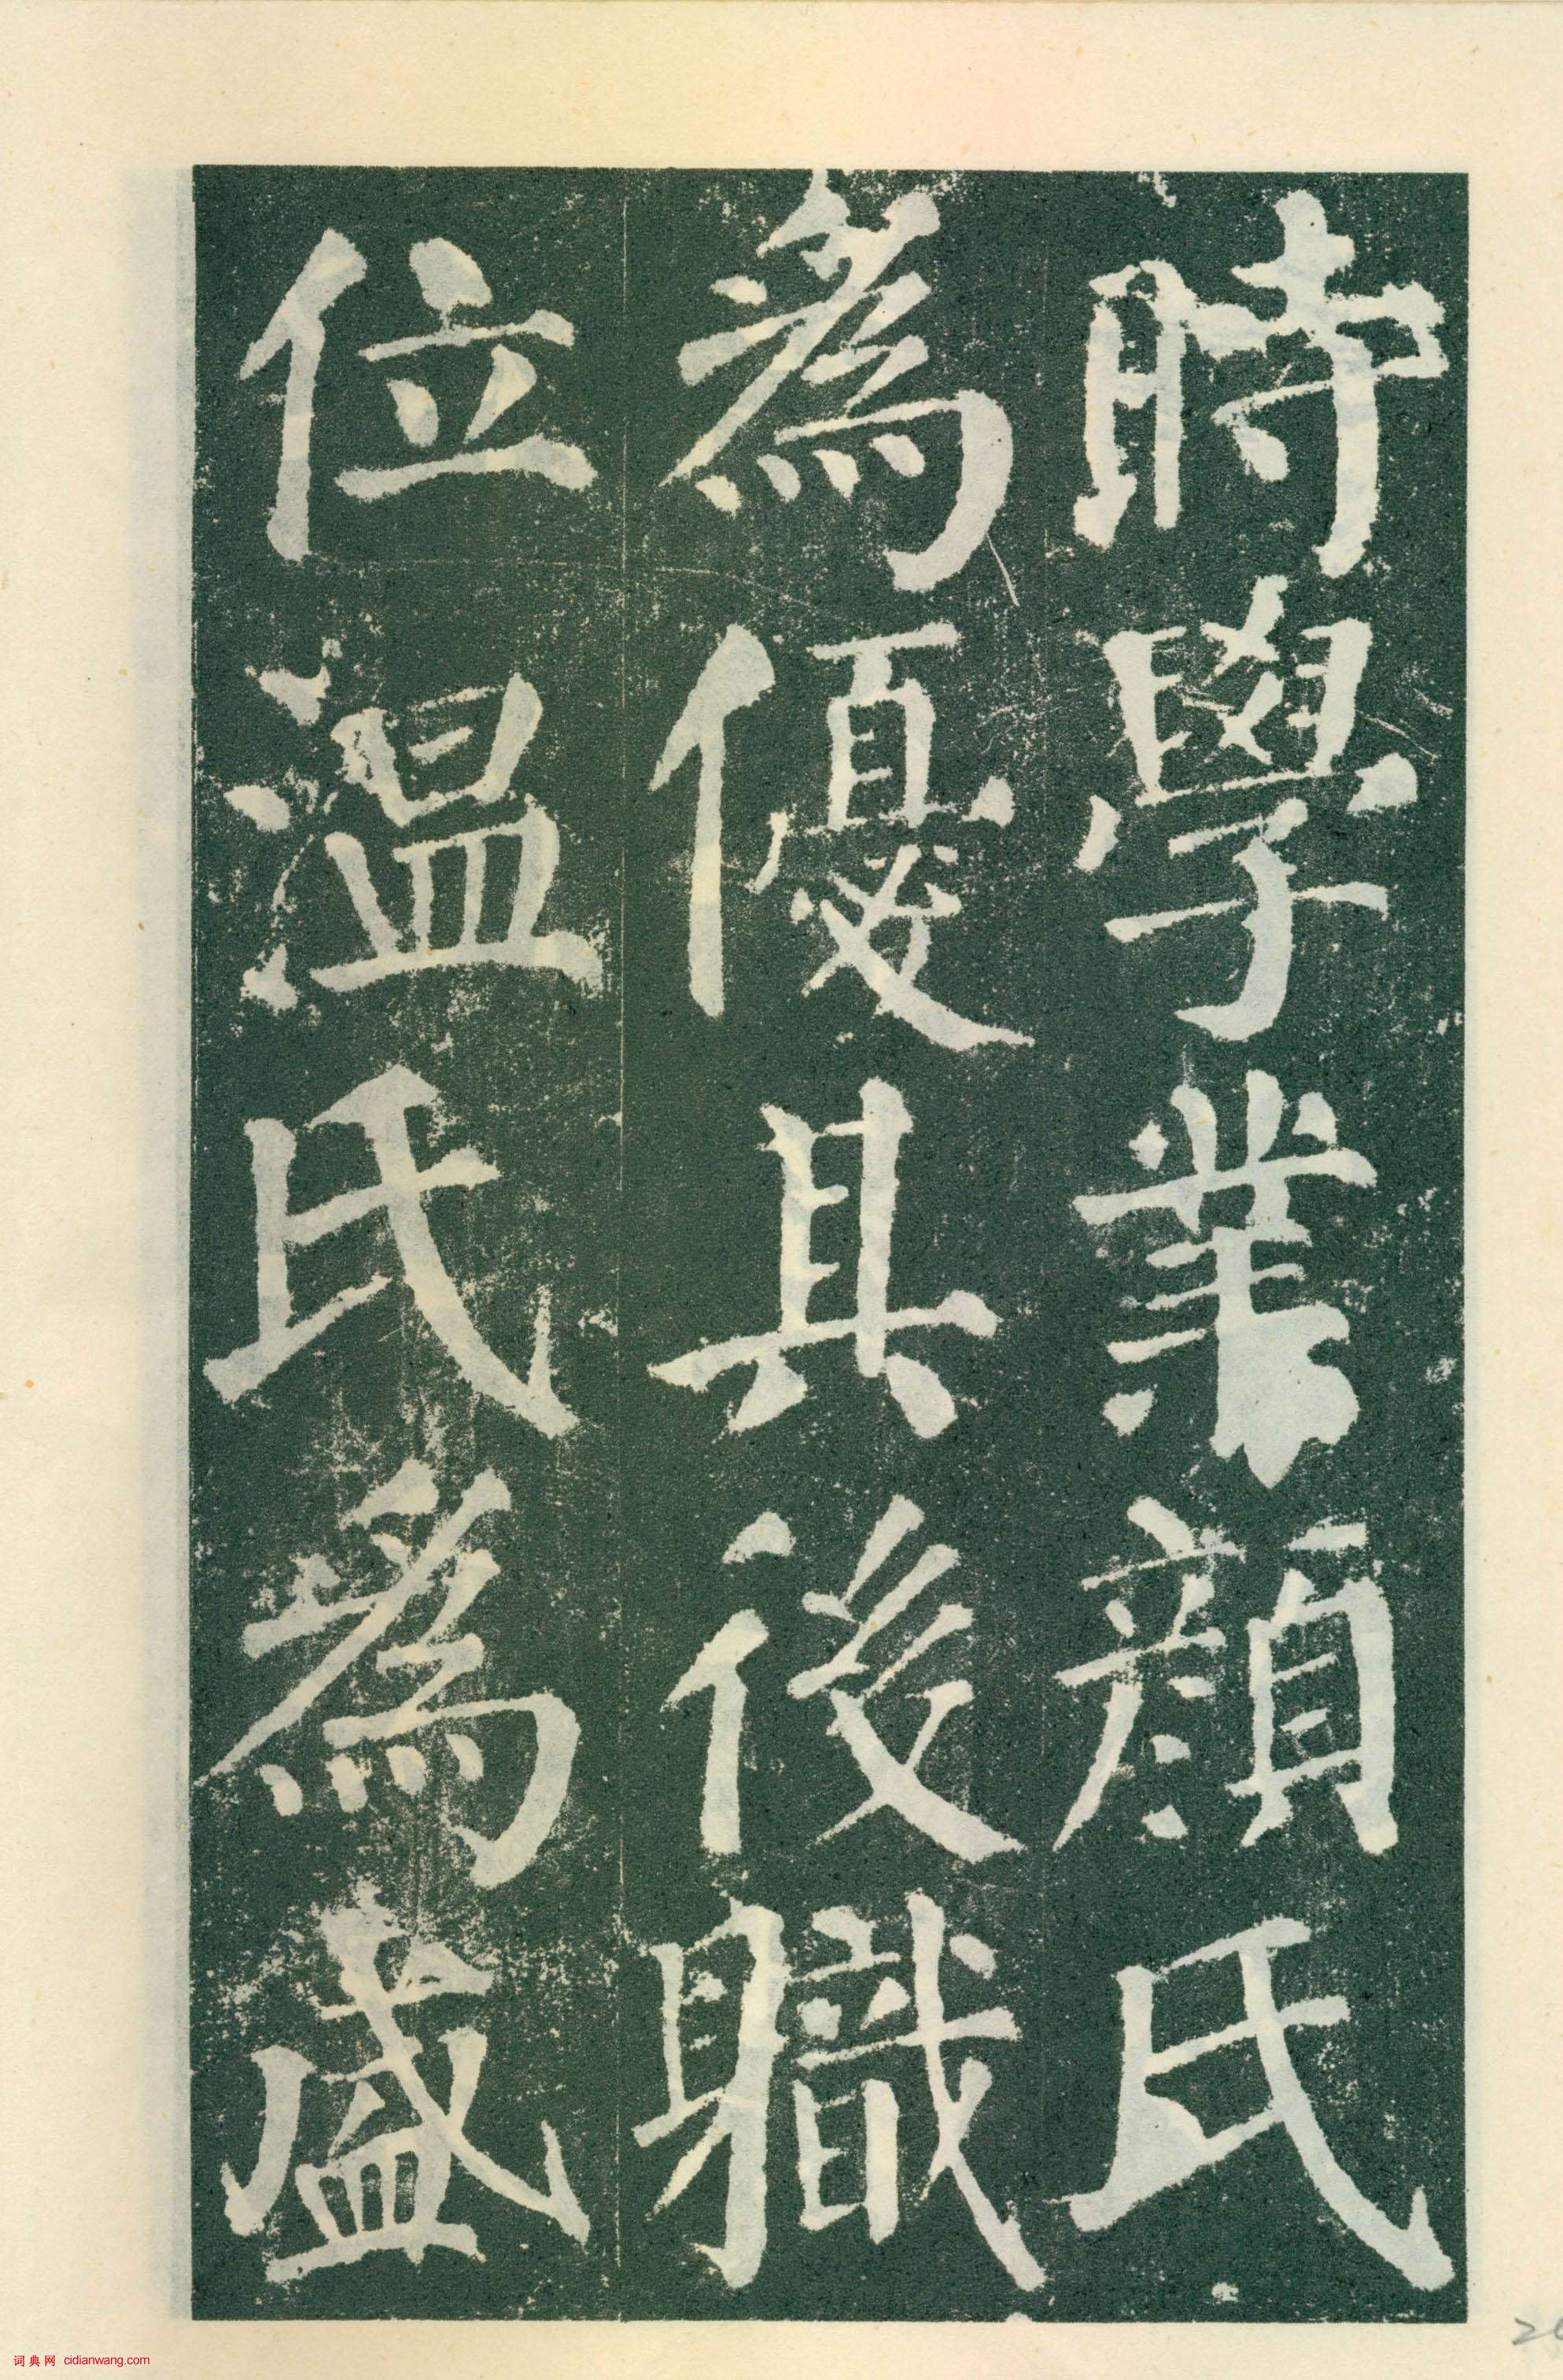 時學業顏氏
為優其後職
位温氏為盛
词典网 cidianwang.com